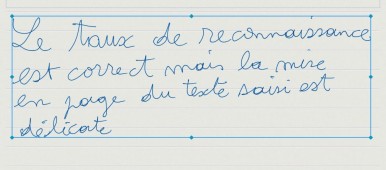 Le taux de reconnaissance
est correct mais la mise
en page du texte saisi est
délicate